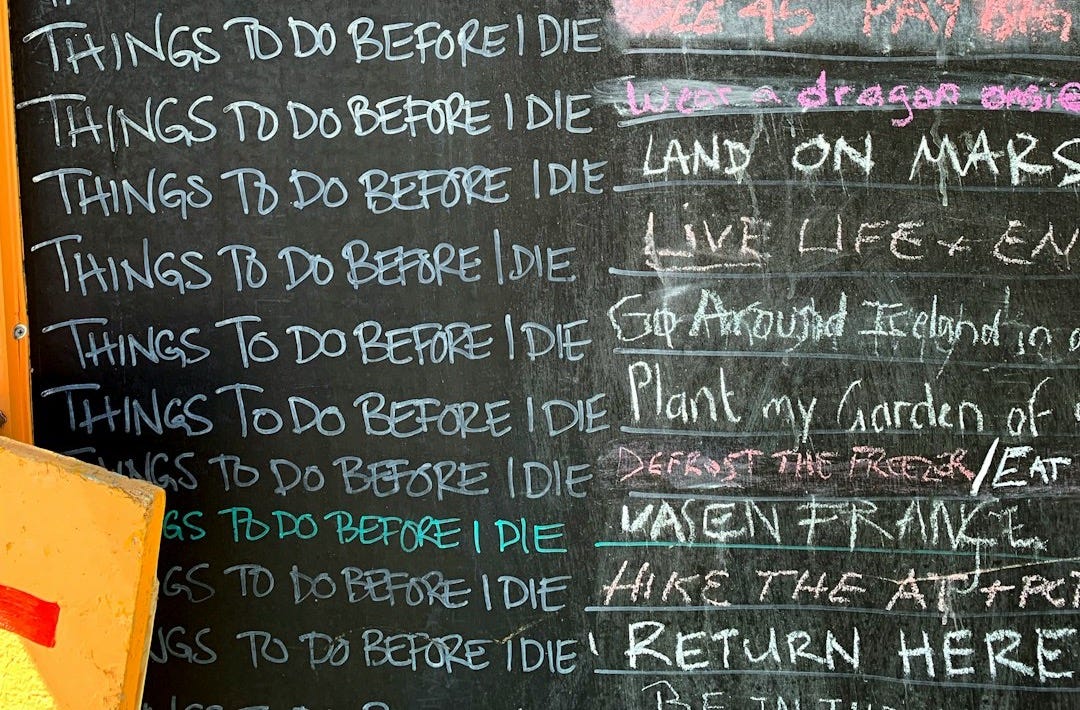 THINGS TO DO BEFORE I DIE SEE 45 PAY
THINGS TO DO BEFORE I DIE Wear a dragon onsie
THINGS TO DO BEFORE I DIE LAND ON MARS
THINGS TO DO BEFORE I DIE LIVE LIFE + EN
THINGS TO DO BEFORE I DIE Go Around Iceland in a
THINGS TO DO BEFORE I DIE Plant my Garden of
INGS TO DO BEFORE I DIE DEFROST THE FREEZER/EAT
GS TO DO BEFORE I DIE FRANCE
GS TO DO BEFORE I DIE HIKE THE AT + PCT
NGS TO DO BEFORE I DIE RETURN HERE
BE IN THE